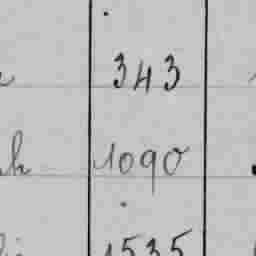 343
1090
1535